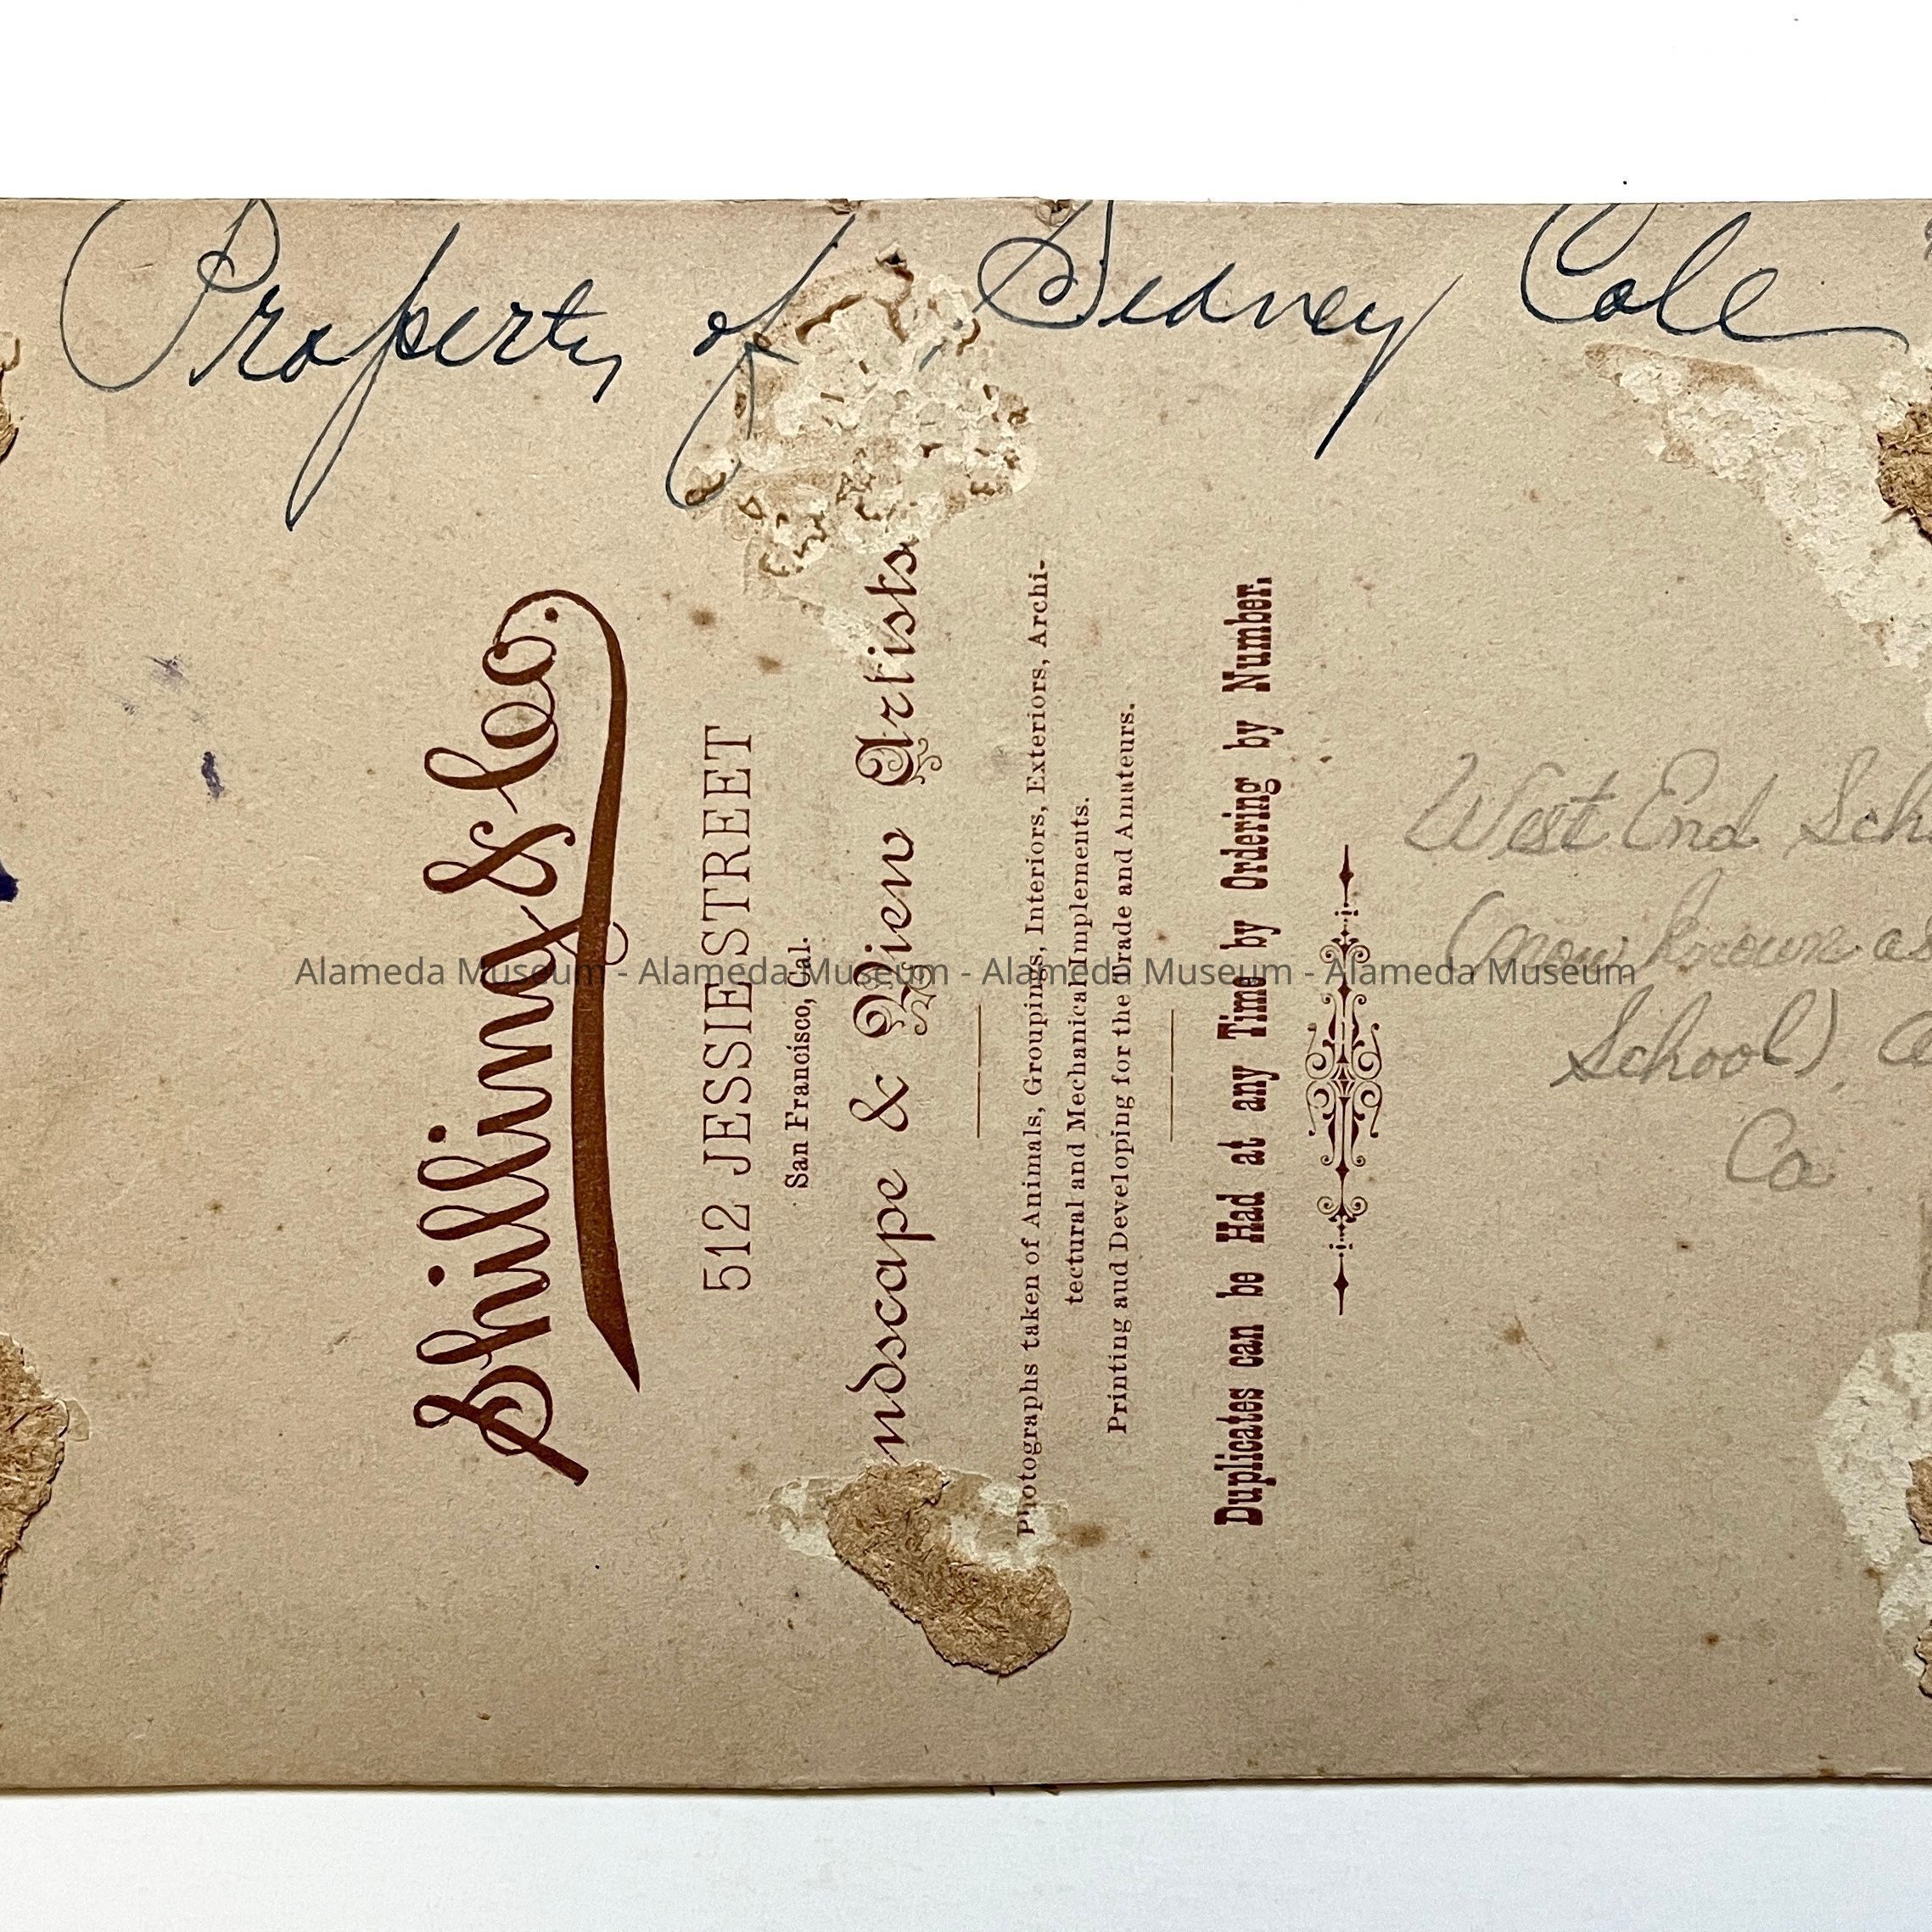 Property of Sidney Cole
Shilling & Co.
512 JESSIE STREET
San Francisco, Cal.
ndscape & View Artists
Photographs taken of Animals, Groupings, Interiors, Exteriors, Archi-
tectural and Mechanical Implements.
Printing aud Developing for the Trade and Amateurs.
Duplicates can be Had at any Time by Ordering by Number.
West End Sch
(now known as
School),
Co
Alameda Museum - Alameda Museum - Alameda Museum - Alameda Museum